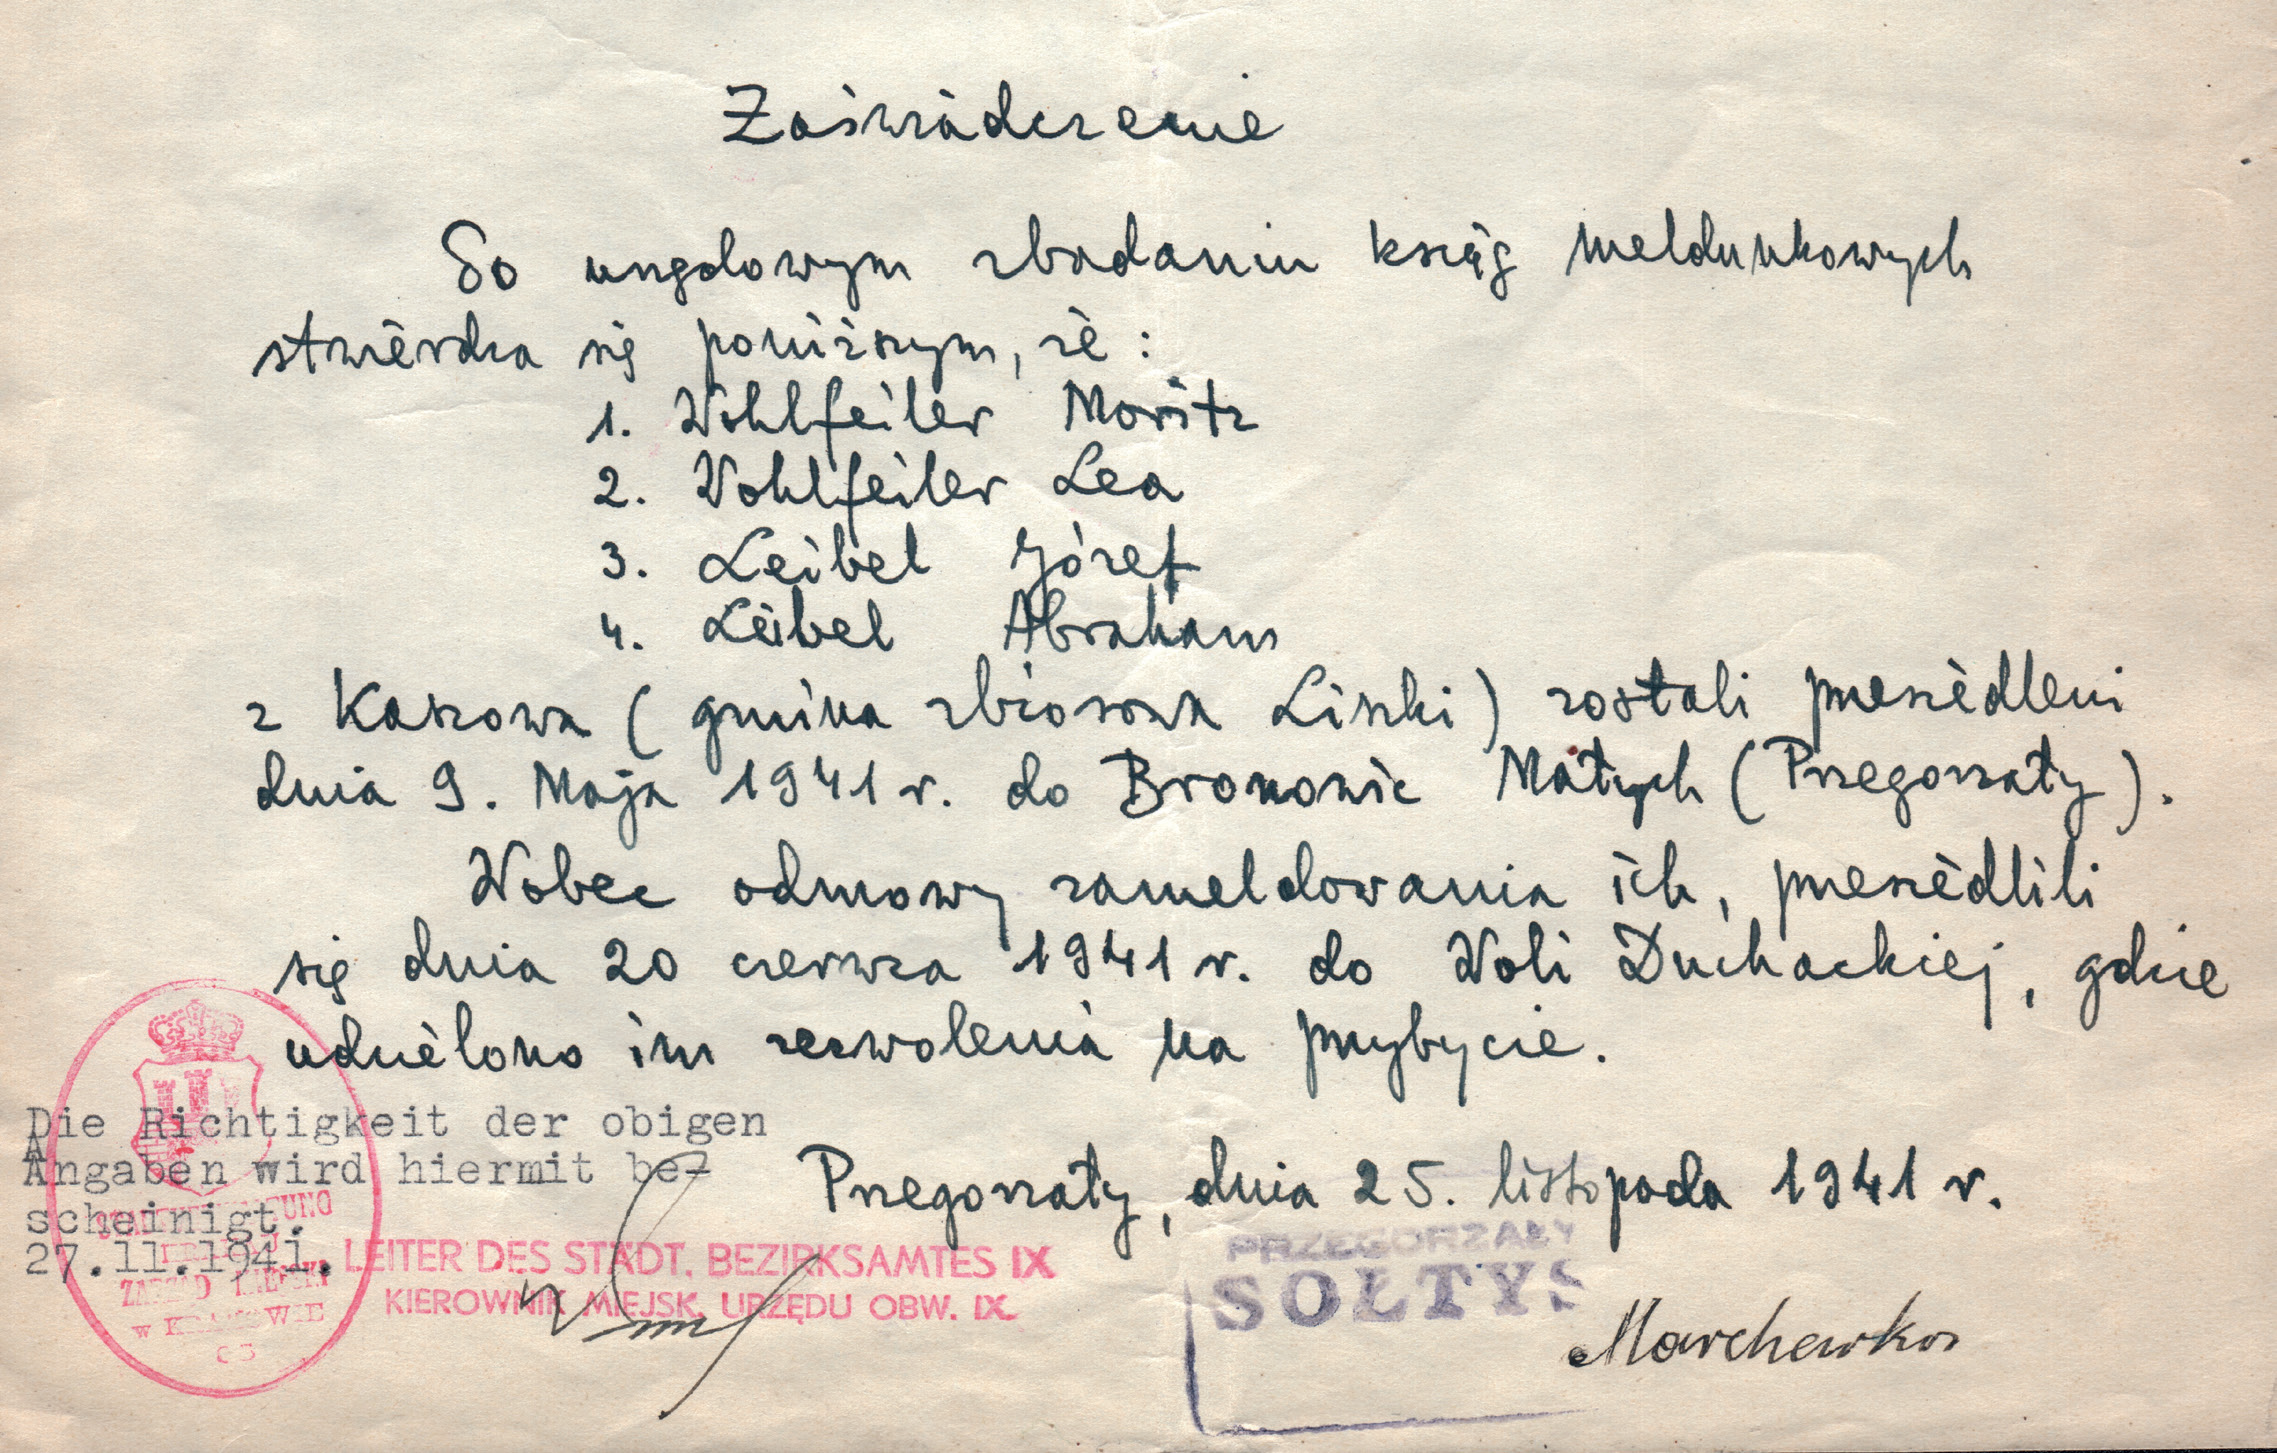 Zaświadczenie
Po urzędowym zbadaniu ksiąg meldunkowych
stwierdza się poniższym, że:
1. Wohlfeiler Moritz
2. Wohlfeiler Lea
3. Leibel Józef
4. Leibel Abraham
z Kaszowa (gmina zbiorowa Liszki) zostali przesiedleni
dnia 9. Maja 1941 r. do Bronowic Małych (Przegorzały).
Wobec odmowy zameldowania ich, przesiedlili
się dnia 20 czerwca 1941 r. do Woli Duchackiej, gdzie
udzielono im zezwolenia na przybycie.
Die Richtigkeit der obigen
Angaben wird hiermit be-
scheinigt.
27.11.1941.
Przegorzały, dnia 25. listopada 1941 r.
LEITER DES STÄDT. BEZIRKSAMTES IX
KIEROWNIK MIEJSK. URZĘDU OBW. IX.
ZARZĄD MIEJSKI
w KRAKOWIE
PRZEGORZAŁY
SOŁTYS
Marchewka